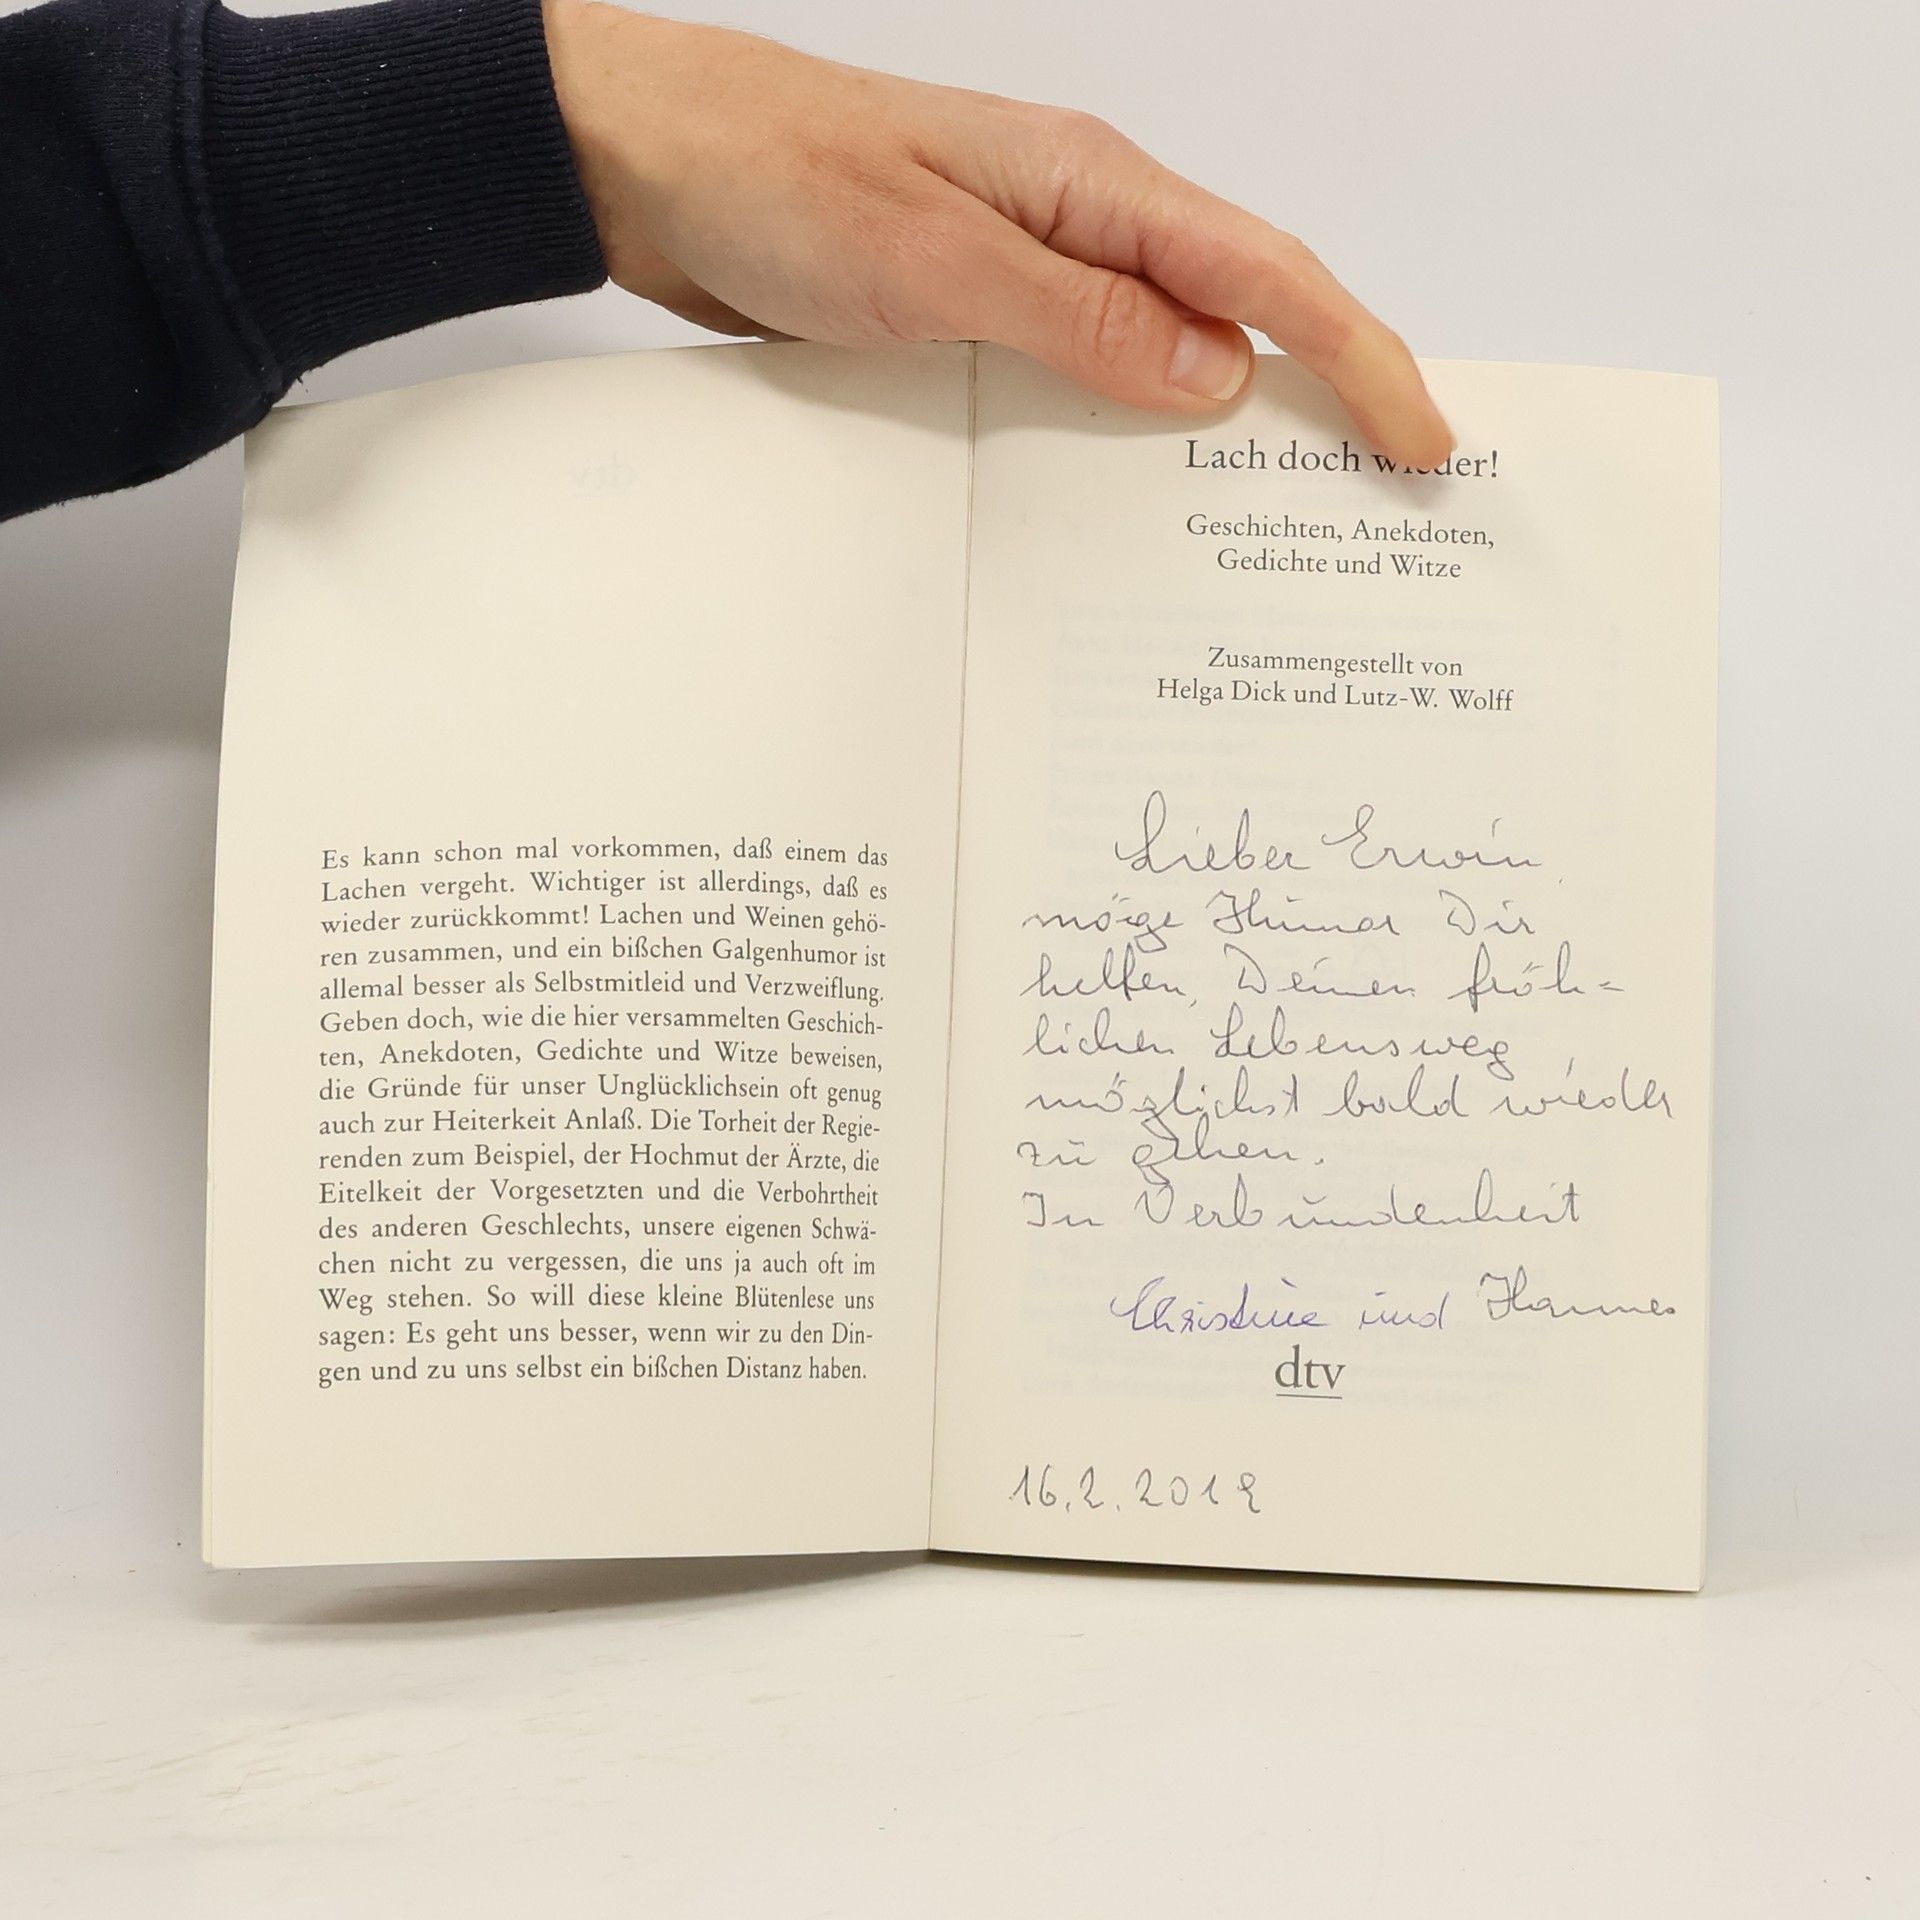 Es kann schon mal vorkommen, daß einem das
Lachen vergeht. Wichtiger ist allerdings, daß es
wieder zurückkommt! Lachen und Weinen gehö-
ren zusammen, und ein bißchen Galgenhumor ist
allemal besser als Selbstmitleid und Verzweiflung.
Geben doch, wie die hier versammelten Geschich-
ten, Anekdoten, Gedichte und Witze beweisen,
die Gründe für unser Unglücklichsein oft genug
auch zur Heiterkeit Anlaß. Die Torheit der Regie-
renden zum Beispiel, der Hochmut der Ärzte, die
Eitelkeit der Vorgesetzten und die Verbohrtheit
des anderen Geschlechts, unsere eigenen Schwä-
chen nicht zu vergessen, die uns ja auch oft im
Weg stehen. So will diese kleine Blütenlese uns
sagen: Es geht uns besser, wenn wir zu den Din-
gen und zu uns selbst ein bißchen Distanz haben.
Lach doch wieder!
Geschichten, Anekdoten,
Gedichte und Witze
Zusammengestellt von
Helga Dick und Lutz-W. Wolff
Lieber Erwin,
möge Humor Dir
helfen, Deinen fröh=
lichen Lebensweg
möglichst bald wieder
zu gehen.
In Verbundenheit
Christine und Hannes
dtv
16.2.2019